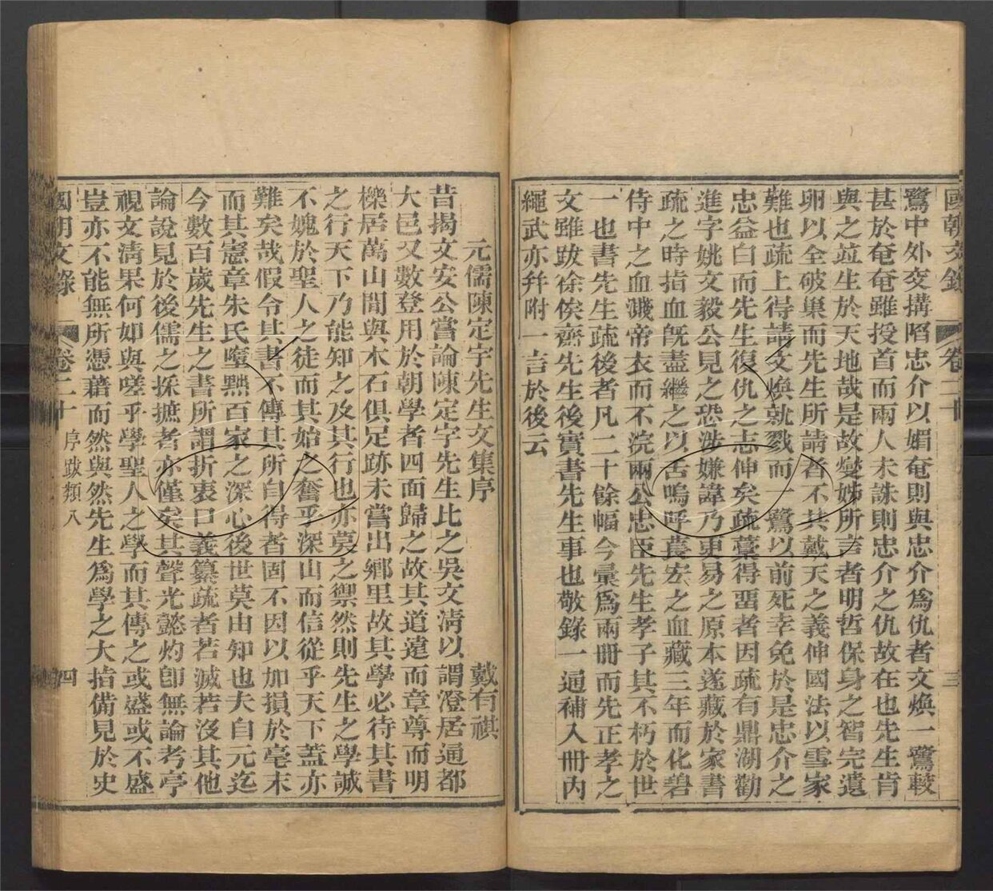 國朝文錄 卷二十 三
鷺中外交搆陷忠介以媚奄則與忠介爲仇者文煥一鷺較
甚於奄奄雖授首而兩人未誅則忠介之仇故在也先生肯
與之竝生於天地哉是故變姊所言者明哲保身之智完遺
卵以全破巢而先生所請者不共戴天之義伸國法以雪家
難也疏上得請文煥就戮而一鷺以前死幸免於是忠介之
忠益白而先生復仇之志伸矣疏藳得畱者因疏有鼎湖勸
進字姚文毅公見之恐涉嫌諱乃更易之原本遂藏於家書
疏之時指血旣盡繼之以舌嗚呼萇宏之血藏三年而化碧
侍中之血濺帝衣而不浣兩公忠臣先生孝子其不朽於世
一也書先生疏後者凡二十餘幅今彙爲兩冊而先正孝之
文雖跋徐俟齋先生後實書先生事也敬錄一通補入冊內
繩武亦幷附一言於後云
元儒陳定宇先生文集序
戴有祺
昔揭文安公嘗論陳定宇先生比之吳文淸以謂澄居通都
大邑又數登用於朝學者四面歸之故其道遠而章尊而明
櫟居萬山間與木石俱足跡未嘗出鄉里故其學必待其書
之行天下乃能知之及其行也亦莫之禦然則先生之學誠
不媿於聖人之徒而其始之奮乎深山而信從乎天下蓋亦
難矣哉假令其書不傳其所自得者固不因以加損於亳末
而其憲章朱氏墮黜百家之深心後世莫由知也夫自元迄
今數百歲先生之書所謂折衷口義纂疏者若滅若沒其他
論說見於後儒之採摭者亦僅矣其聲光懿灼卽無論考亭
視文淸果何如與嗟乎學聖人之學而其傳之或盛或不盛
豈亦不能無所憑藉而然與然先生爲學之大指備見於史
國朝文錄 卷二十 序跋類八 四